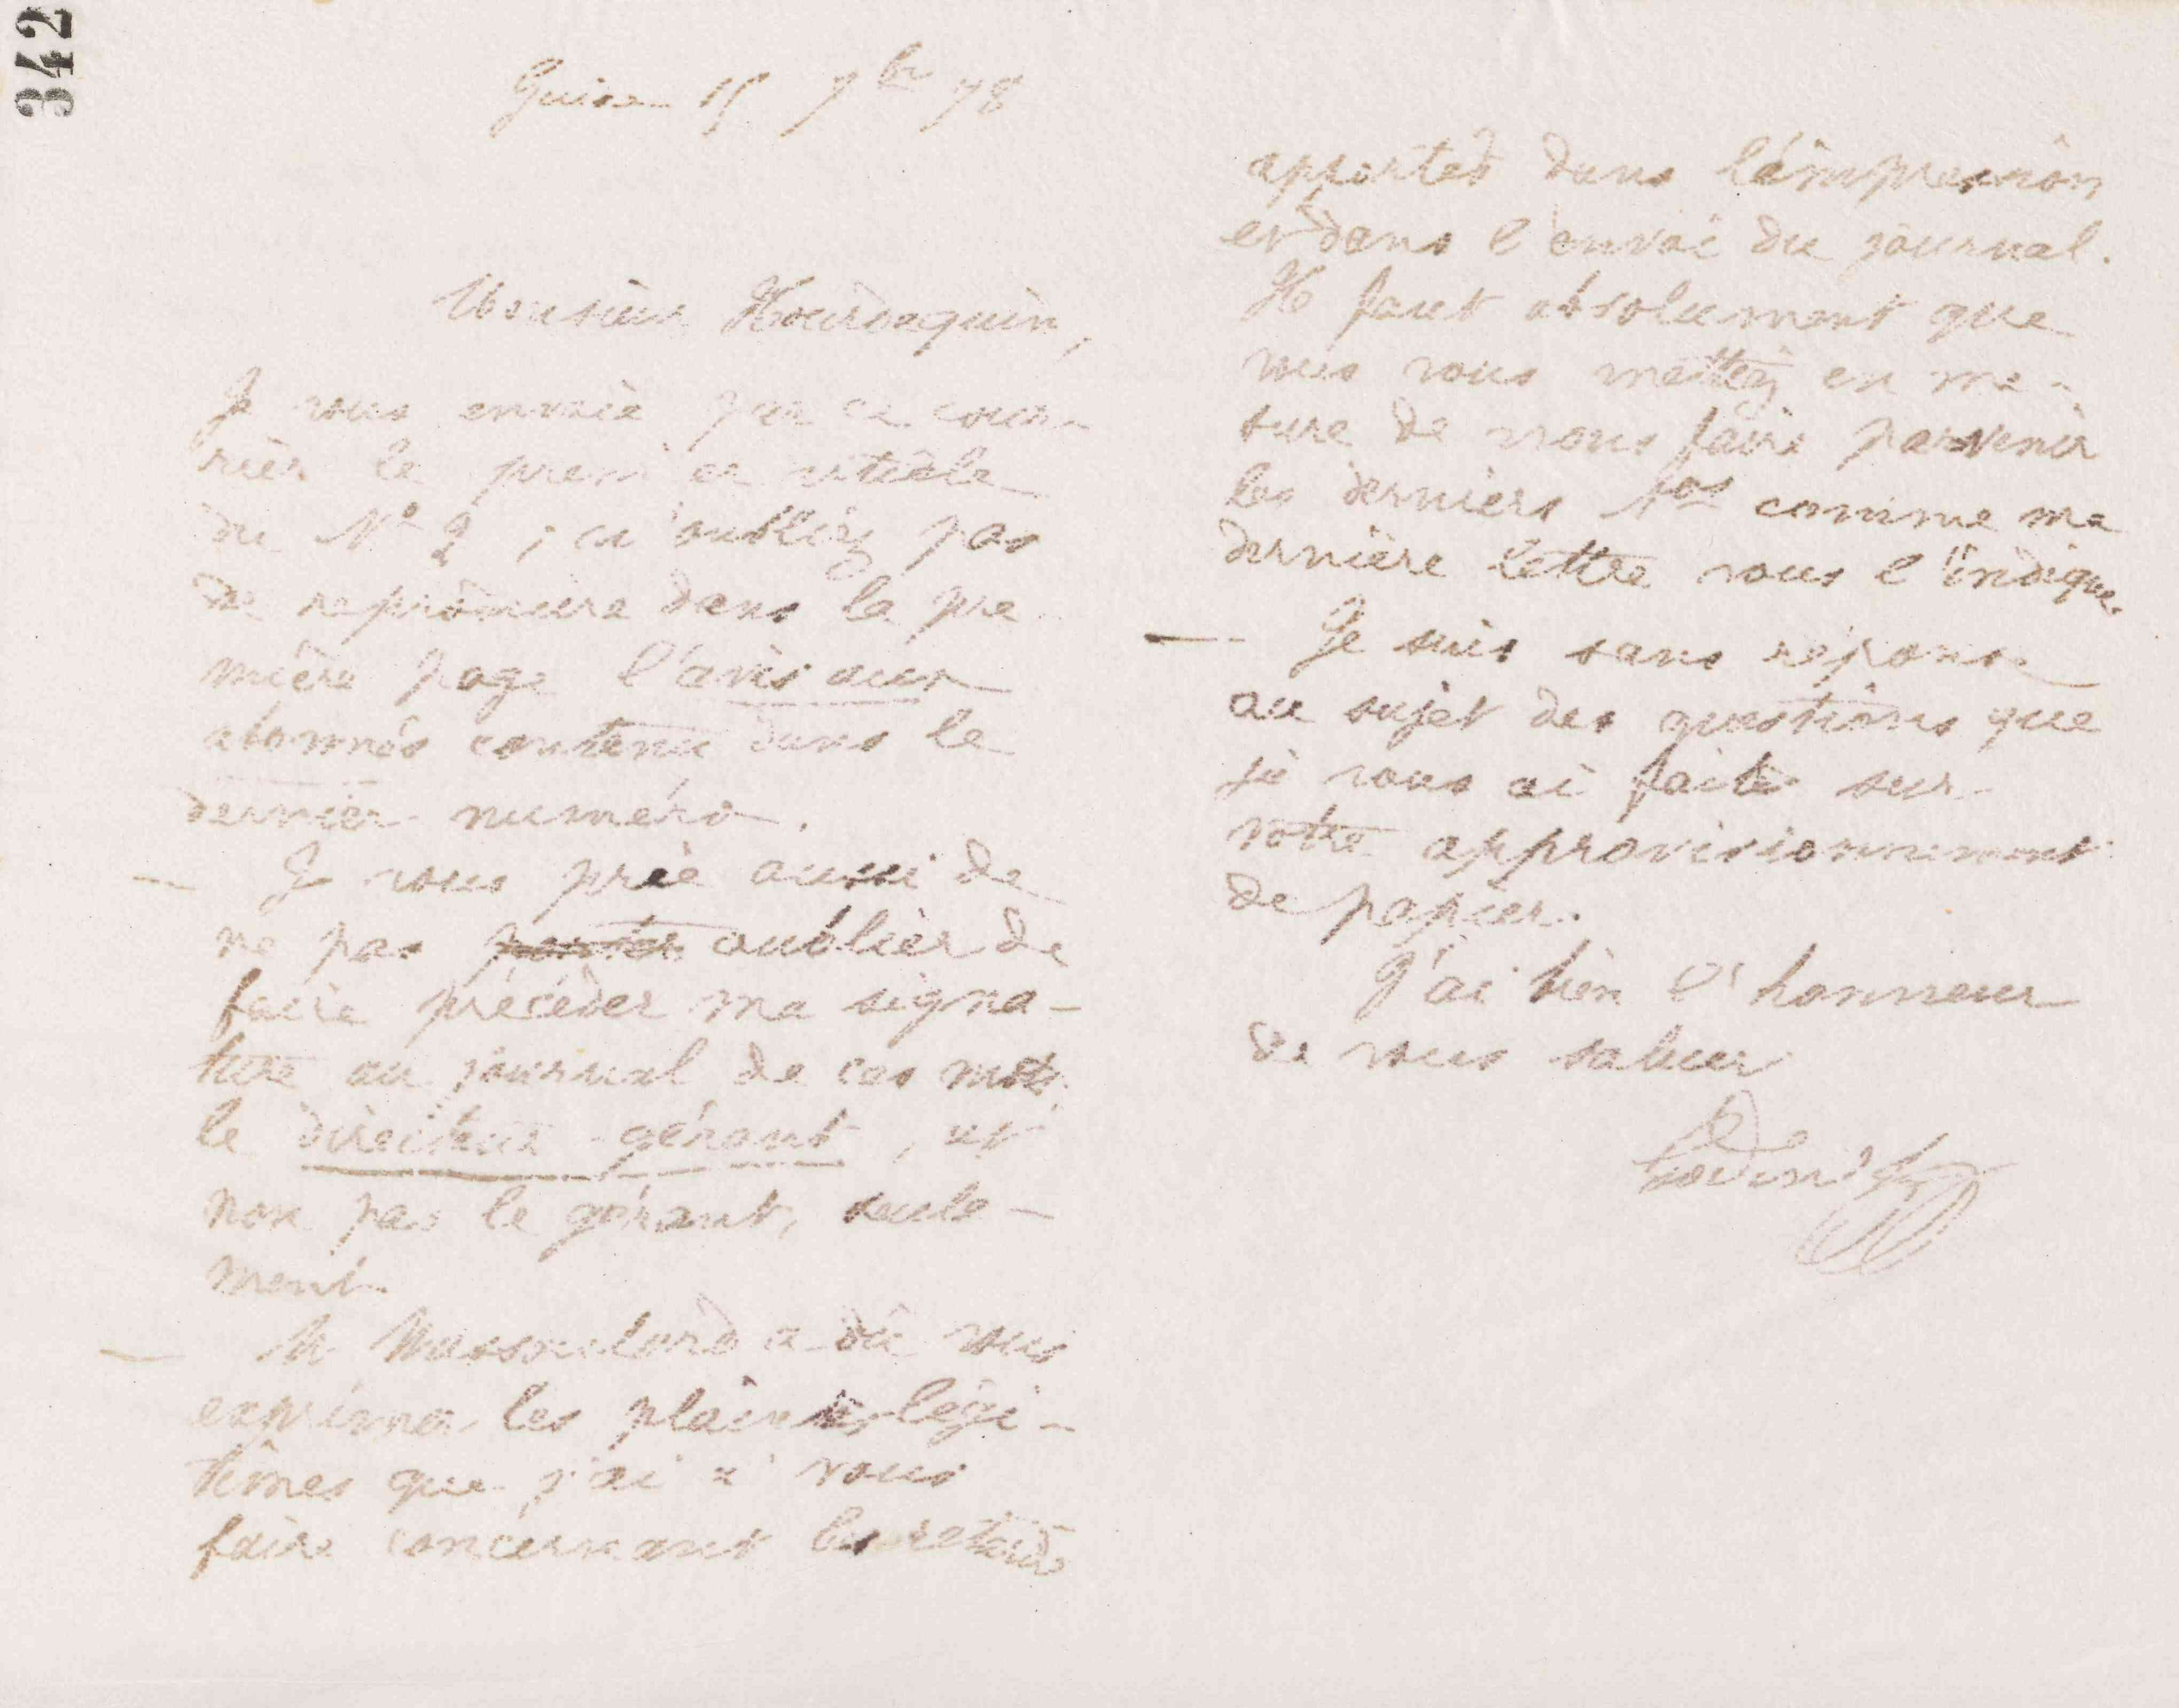 342
Guise 15 7bre 78
Monsieur Hourdequin,
Je vous envoie par ce cour-
rier le premier article
du N° 2 ; n'oubliez pas
de reproduire dans la pre-
mière page l'avis aux
abonnés contenu dans le
dernier numéro.
— Je vous prie aussi de
ne pas porter oublier de
faire précéder ma signa-
ture au journal de ces mots
le directeur-gérant, et
non pas le gérant, seule-
ment.
— M. Massoulard a dû vous
exprimer les plaintes légi-
times que j'ai à vous
faire concernant les retards
apportés dans l'impression
et dans l'envoi du journal.
Il faut absolument que
vous vous mettiez en me-
sure de nous faire parvenir
les derniers Nos comme ma
dernière lettre vous l'indique.
— Je suis sans réponse
au sujet des questions que
je vous ai faites sur
votre approvisionnement
de papier.
J'ai bien l'honneur
de vous saluer
Godin